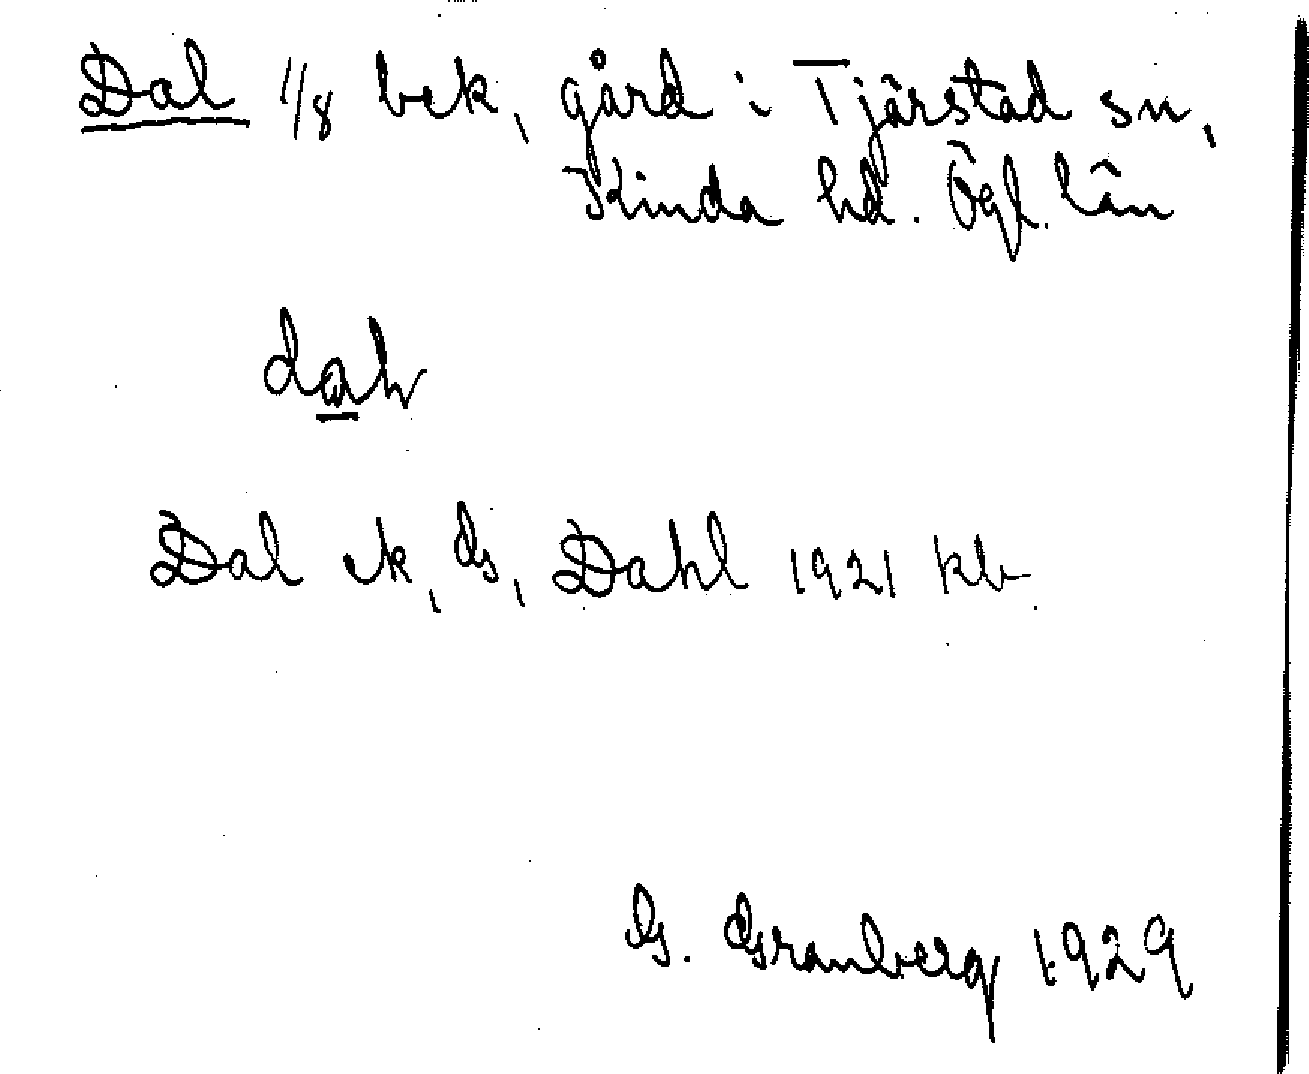 Dal 1/8 bek, gård i Tjärstad sn,
Kinda hd. Ögl. län
dal
Dal ek, G, Dahl 1921 kb
G. Granberg 1929